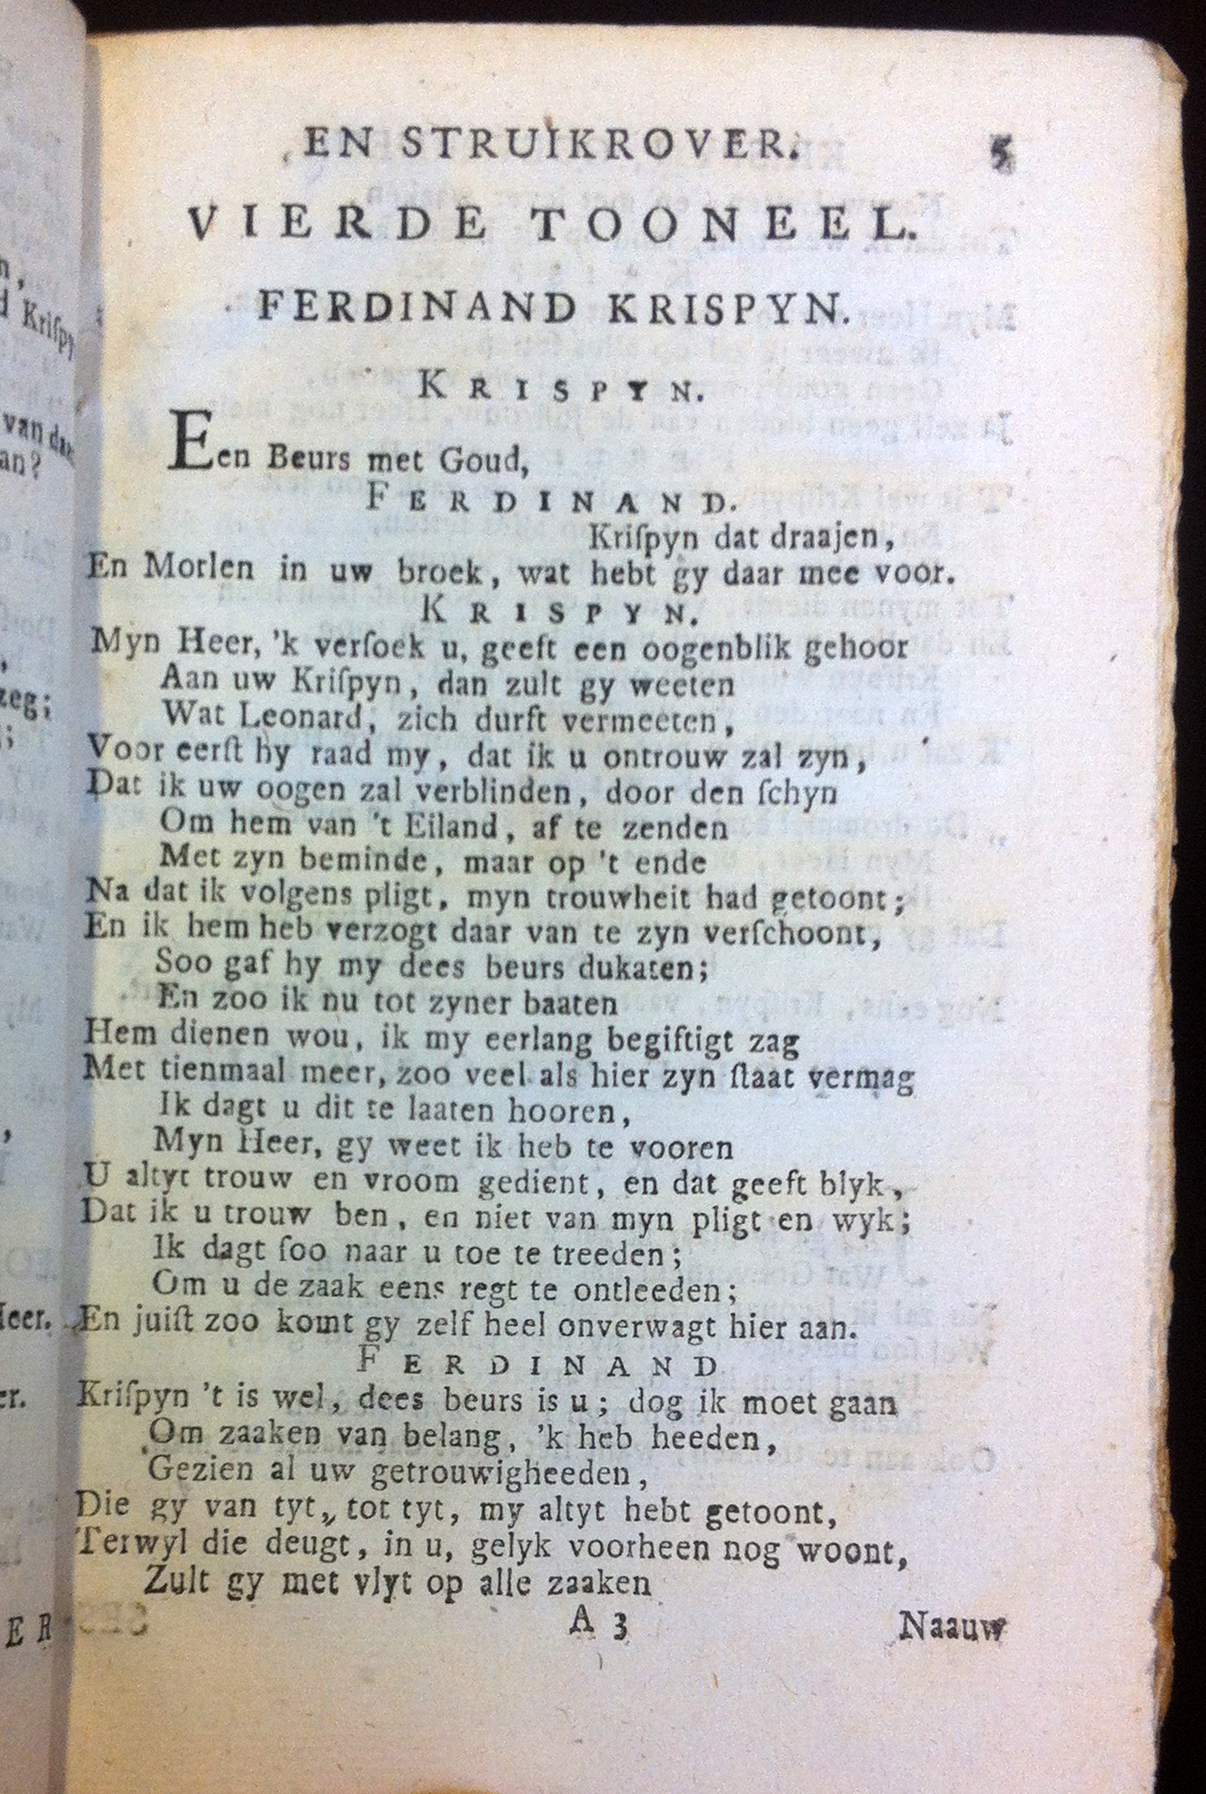 EN STRUIKROVER. 5
VIERDE TOONEEL.
FERDINAND KRISPYN.
KRISPYN.
Een Beurs met Goud,
FERDINAND.
Kriſpyn dat draajen,
En Morlen in uw broek, wat hebt gy daar mee voor.
KRISPYN.
Myn Heer, 'k verſoek u, geeft een oogenblik gehoor
Aan uw Kriſpyn, dan zult gy weeten
Wat Leonard, zich durft vermeeten,
Voor eerſt hy raad my, dat ik u ontrouw zal zyn,
Dat ik uw oogen zal verblinden, door den ſchyn
Om hem van 't Eiland, af te zenden
Met zyn beminde, maar op 't ende
Na dat ik volgens pligt, myn trouwheit had getoont;
En ik hem heb verzogt daar van te zyn verſchoont,
Soo gaf hy my dees beurs dukaten;
En zoo ik nu tot zyner baaten
Hem dienen wou, ik my eerlang begiftigt zag
Met tienmaal meer, zoo veel als hier zyn ſtaat vermag
Ik dagt u dit te laaten hooren,
Myn Heer, gy weet ik heb te vooren
U altyt trouw en vroom gedient, en dat geeft blyk,
Dat ik u trouw ben, en niet van myn pligt en wyk;
Ik dagt ſoo naar u toe te treeden;
Om u de zaak eens regt te ontleeden;
En juiſt zoo komt gy zelf heel onverwagt hier aan.
FERDINAND
Kriſpyn 't is wel, dees beurs is u; dog ik moet gaan
Om zaaken van belang, 'k heb heeden,
Gezien al uw getrouwigheeden,
Die gy van tyt, tot tyt, my altyt hebt getoont,
Terwyl die deugt, in u, gelyk voorheen nog woont,
Zult gy met vlyt op alle zaaken
A 3 Naauw